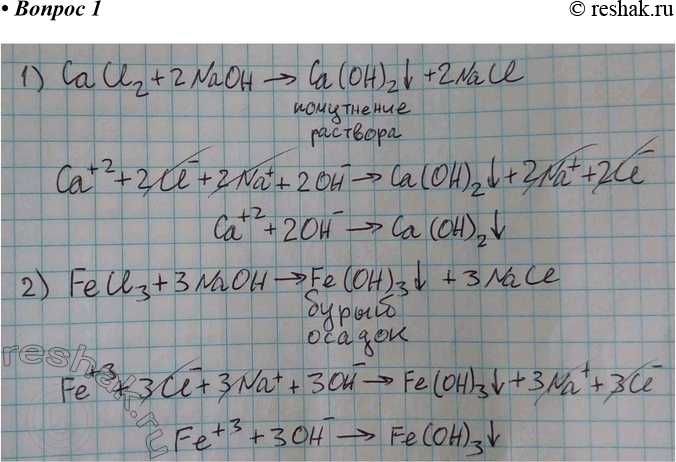 • Вопрос 1
© reshak.ru
1) CaCl₂ + 2NaOH → Ca(OH)₂↓ + 2NaCl
помутнение
раствора
Ca⁺² + 2Cl⁻ + 2Na⁺ + 2OH⁻ → Ca(OH)₂↓ + 2Na⁺ + 2Cl⁻
Ca⁺² + 2OH⁻ → Ca(OH)₂↓
2) FeCl₃ + 3NaOH → Fe(OH)₃↓ + 3NaCl
бурый
осадок
Fe⁺³ + 3Cl⁻ + 3Na⁺ + 3OH⁻ → Fe(OH)₃↓ + 3Na⁺ + 3Cl⁻
Fe⁺³ + 3OH⁻ → Fe(OH)₃↓
reshak.ru